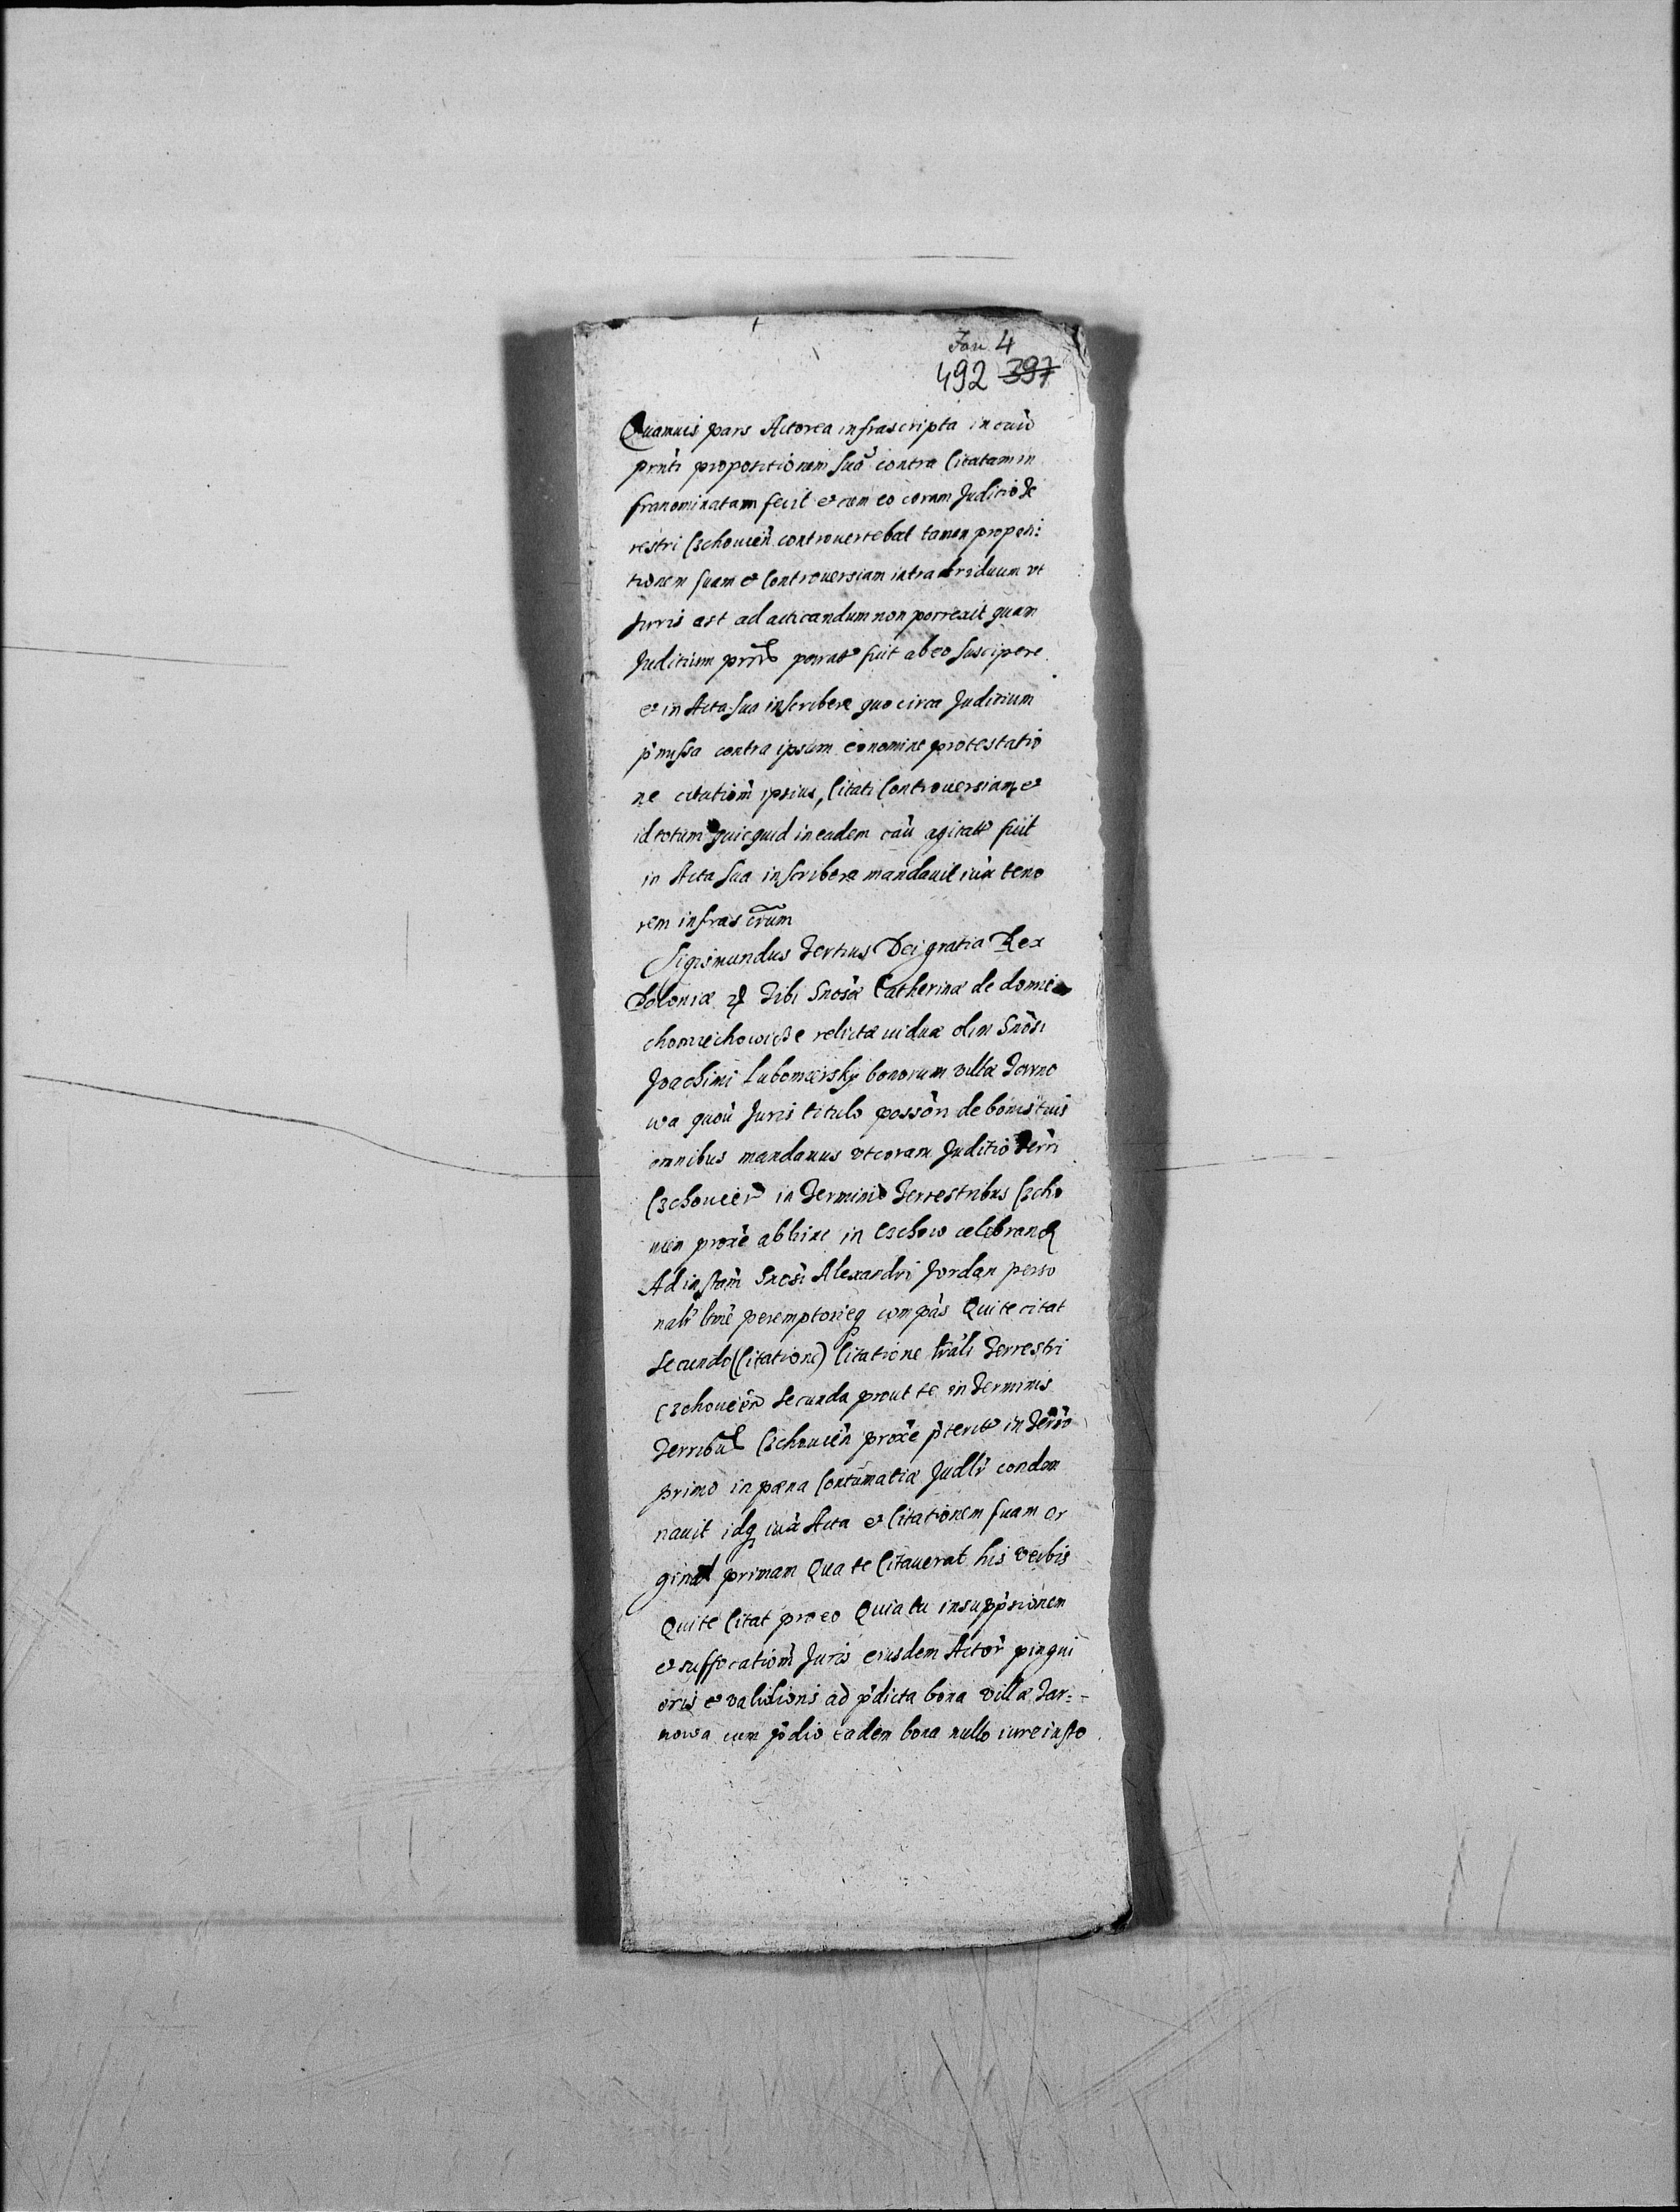 Jan 4
492 397
Quamuis pars Actorea infrascripta in cau
pnti propositionem sua contra Citatam in
franominatam fecit et cum eo coram Juditio Te
restri Czchouien controvertebat tamen proposi:
tionem suam et Controversiam intra triduum vt
Juris est ad acticandum non porrexit quam
Juditium pns parat fuit ab eo suscipere
et in Acta sua inscribere quo circa Juditium
pmissa contra ipsum eo nomine protestatio
ne citation ipsius, Citati Controversiam et
id totum quicquid in eadem cau agitat fuit
in Acta sua inscribere mandauit iux teno
rem infrascrum
Sigismundus Tertius Dei gratia Rex
Poloniæ Tibi Gnosæ Catherinæ de domie
chomiechowicze relictæ uiduæ olim Gnosi
Joachimi Lubomiersky bonorum villæ Tarno
wa quou Juris titulo posson de bonis tuis
omnibus mandamus vt coram Juditio Terri
Czchouien in Terminis Terrestribus Czcho
uien proxe abhinc in Czchow celebrand
Ad instam Gnosi Alexandri Jordan perso
nalr ltme peremptorieq compas Qui te citat
secundo (Citatione) Citatione lrali Terrestri
Czchouien secunda prout te in Terminis
Terribus Czchouien proxe pterit in Termo
primo in pœna Contumatiæ Judlr condem
nauit idq iux Acta et Citationem suam or
ginal primam Qua te Citauerat his verbis
Qui te Citat pro eo Quia tu in suppsionem
et suffocation Juris eiusdem Actor pingui
oris et validioris ad pdicta bona villæ Tar=
nowa cum pdio eadem bona nullo iure insto